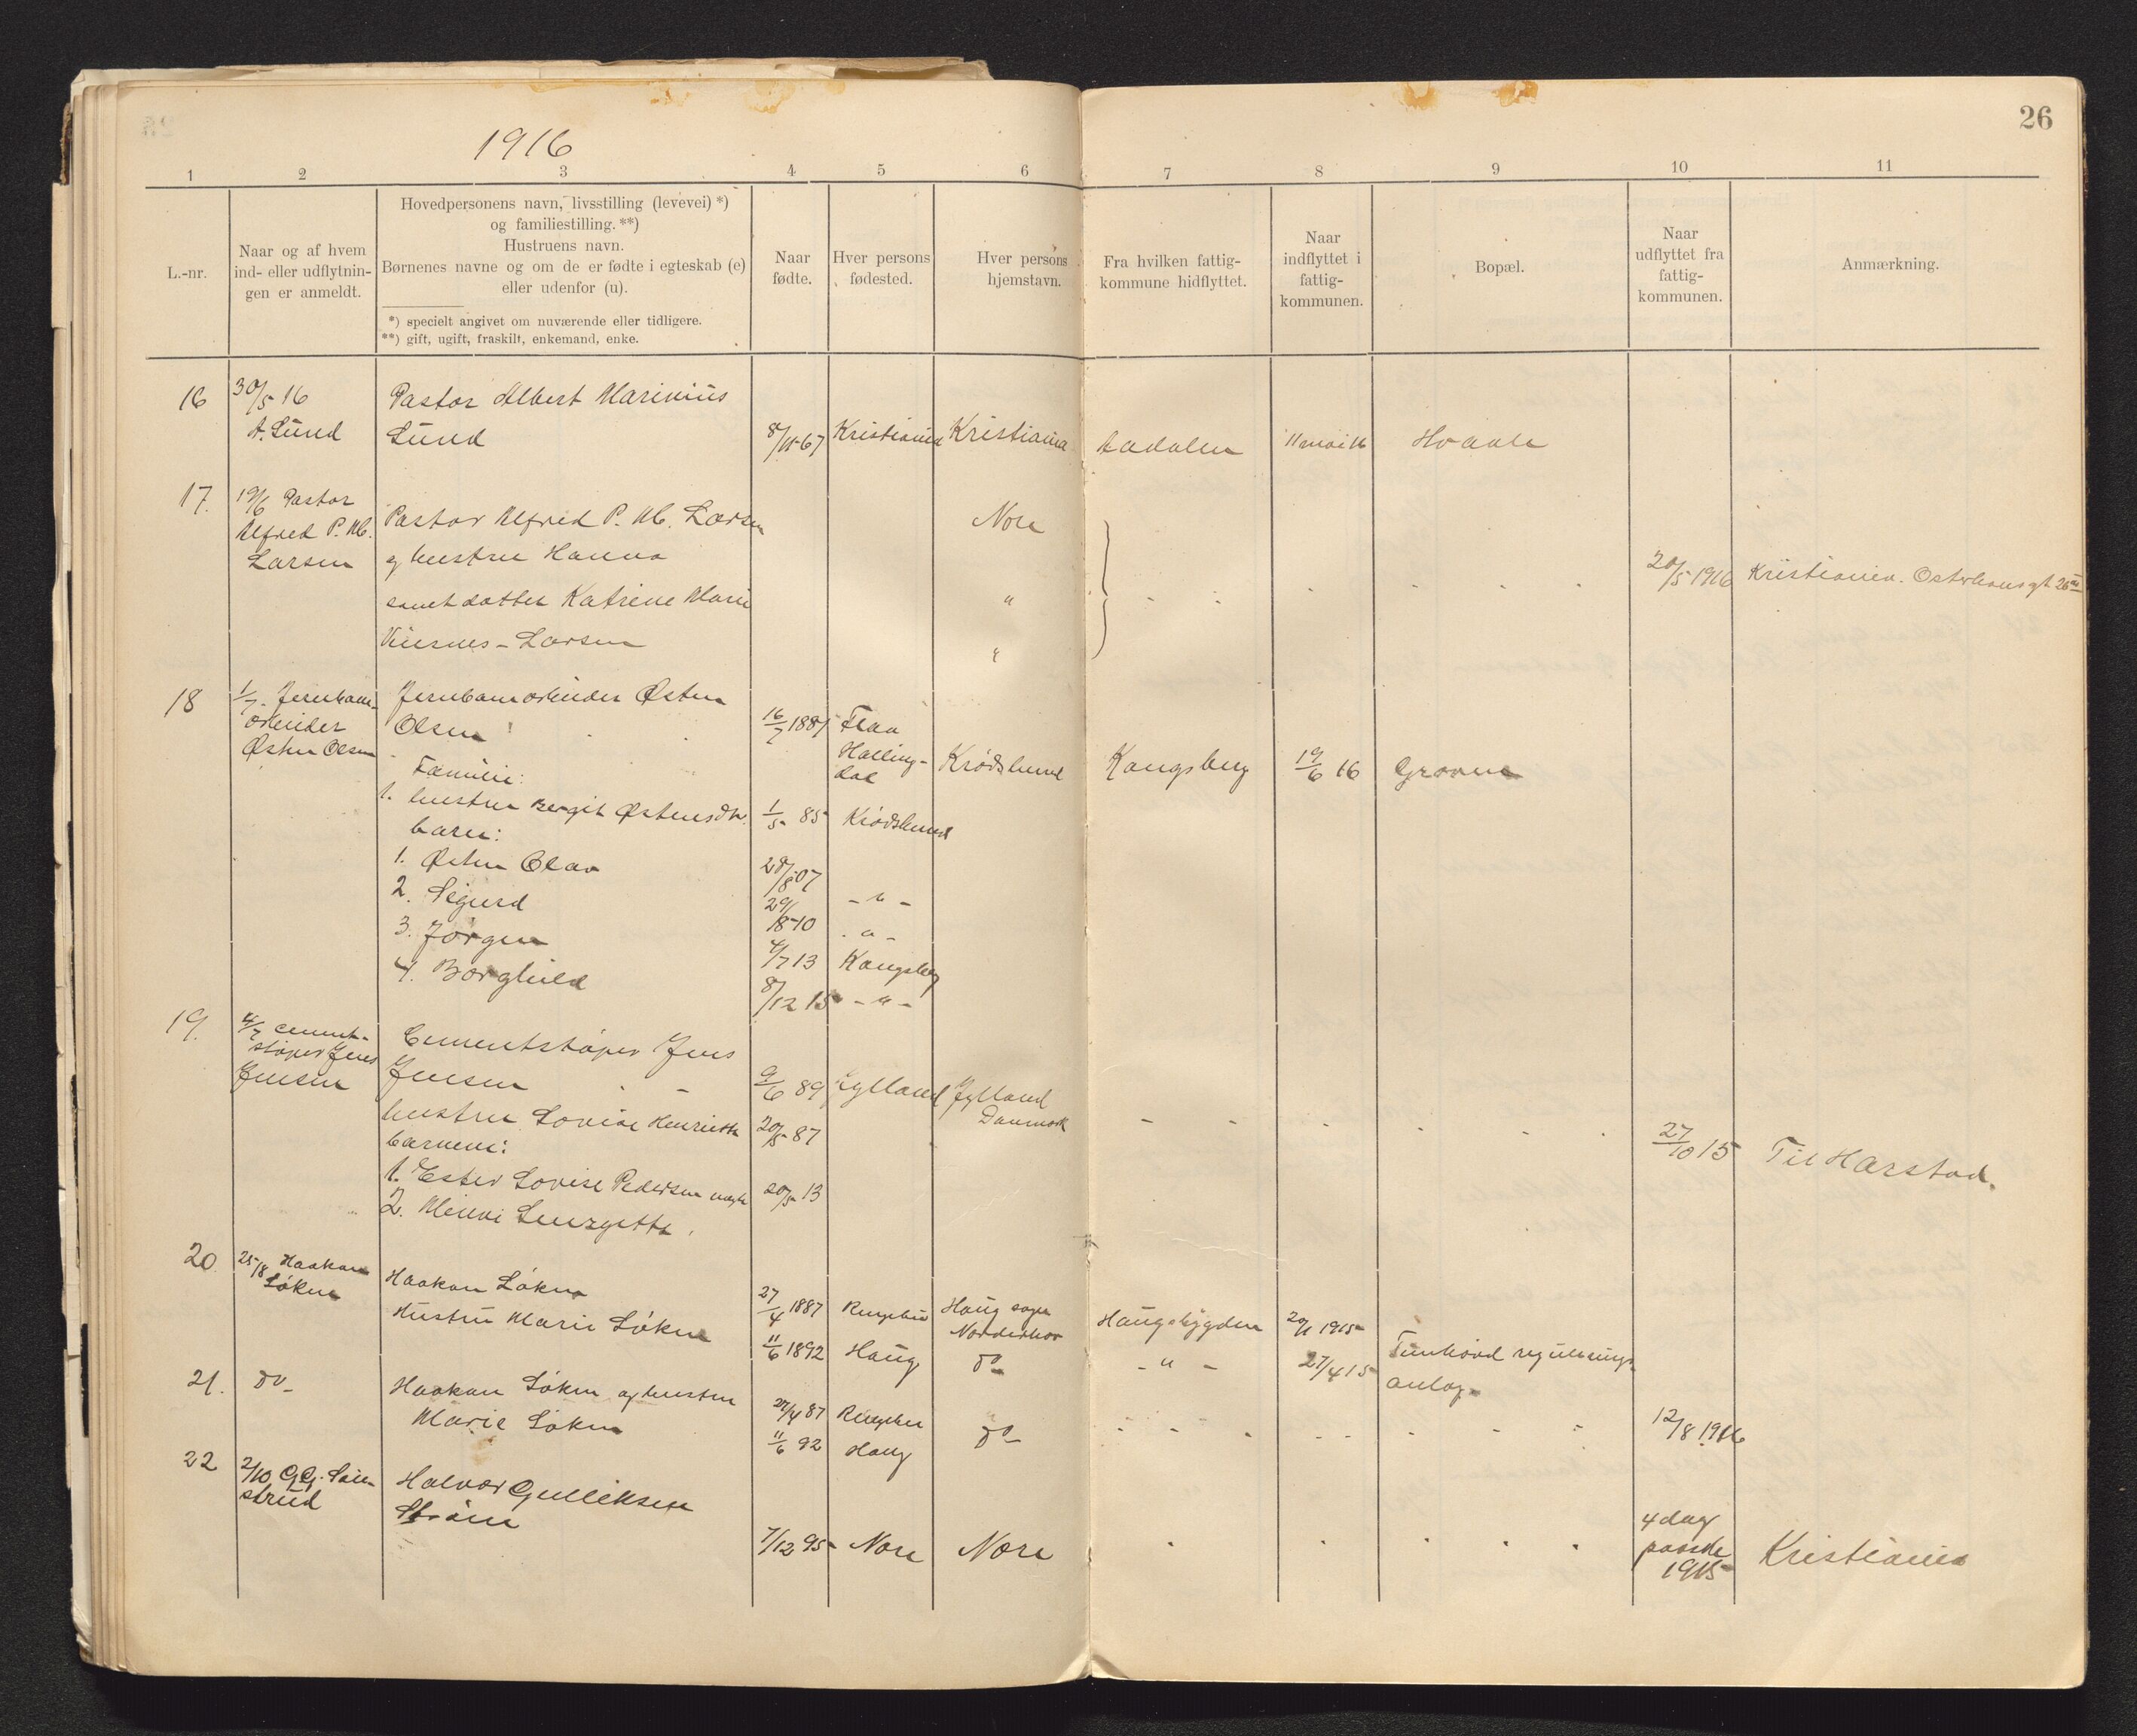 26
1916
1 2 3 4 5 6 7 8 9 10 11
L.-nr.
Naar og af hvem
ind- eller udflytnin-
gen er anmeldt.
Hovedpersonens navn, livsstilling (levevei) *)
og familiestilling. **)
Hustruens navn.
Børnenes navne og om de er fødte i egteskab (e)
eller udenfor (u).
*) specielt angivet om nuværende eller tidligere.
**) gift, ugift, fraskilt, enkemand, enke.
Naar
fødte.
Hver persons
fødested.
Hver persons
hjemstavn.
Fra hvilken fattig-
kommune hidflyttet.
Naar
indflyttet i
fattig-
kommunen.
Bopæl.
Naar
udflyttet fra
fattig-
kommunen.
Anmærkning.
16 30/5 16 Pastor Albert Marinius
A. Lund Lund 8/11-67 Kristiania Kristiania Aadalen 11 mai 16 Hvaale
17. 19/6 Pastor
Alfred P. Larsen Pastor Alfred P. Larsen Nore
og hustru Hanna 20/5 1916 Kristiania.
samt datter Katrine Marie "
Larsen "
18 1/7. Jernbane- Jernbanearbeider Østen
arbeider Olsen 16/7 Flaa
Østen Olsen Halling-
dal Krødsherred Kongsberg 19/6 16 Groven
Familie:
1. hustru Bergit Østensdtr. 1/5 85 Krødsherred
barn:
1. Østen Olav 28/8 07
2. Sigurd 29/8-10 - " -
3. Jørgen 4/7 13 - " -
4. Borghild 8/12 15 Kongsberg
- " -
19. 4/7 cement- Cementstøper Jens
støper Jens Jensen 9/6 89 Jylland Jylland
Jensen Danmark
hustru Lovise Henriette 20/5 87 27/10 15 Til Harstad.
barnene:
1. Ester Lovise Pedersen 20/5 13
2.
20. 25/8 Haakon Haakon Løken 27/4 1887 Ringebu Haug sogn
Løken Norderhov Haugsbygden 1915
Hustru Marie Løken 11/6 1892 Haug do - " - 27/4 15 Tunhövd regulerings
anlæg.
21. do Haakon Løken og hustru 27/4 87 Ringebu
Marie Løken 11/6 92 Haug do 12/8 1916
22 2/10 G.G. Halvor Gulliksen
7/12 95 Nore Nore 4 dag
paaske
1915 Kristiania